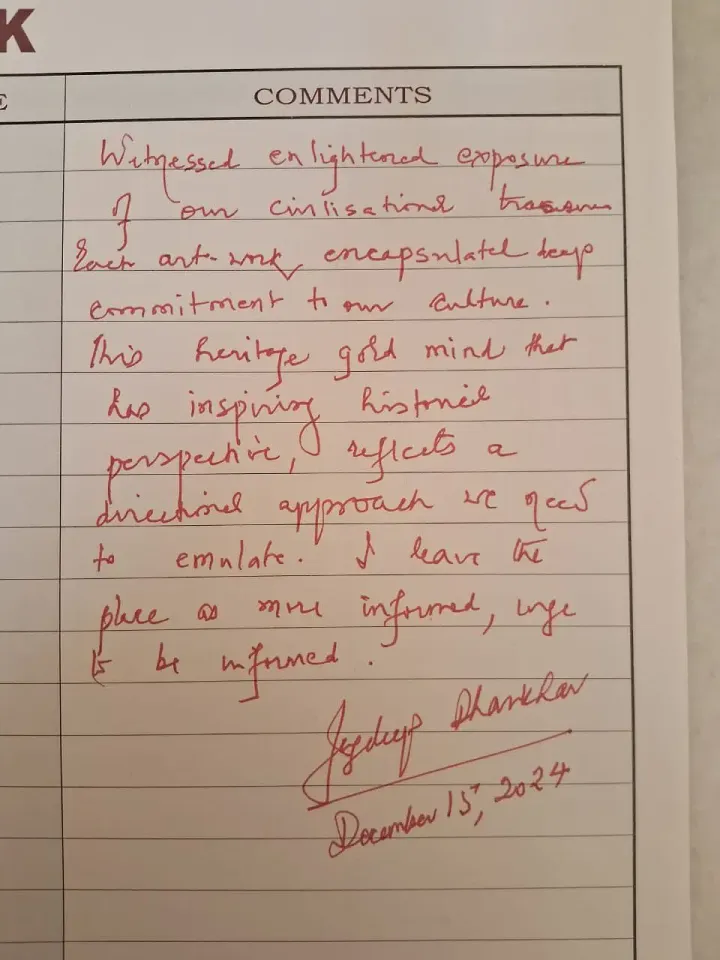 K
E
COMMENTS
Witnessed enlightened exposure
of our civilisational treasure
Each art-work encapsulated deep
commitment to our culture.
This heritage gold mind that
has inspiring historical
perspective, reflects a
directional approach we need
to emulate. I leave the
place as more informed, urge
to be informed.
Jagdeep Dhankhar
December 15, 2024